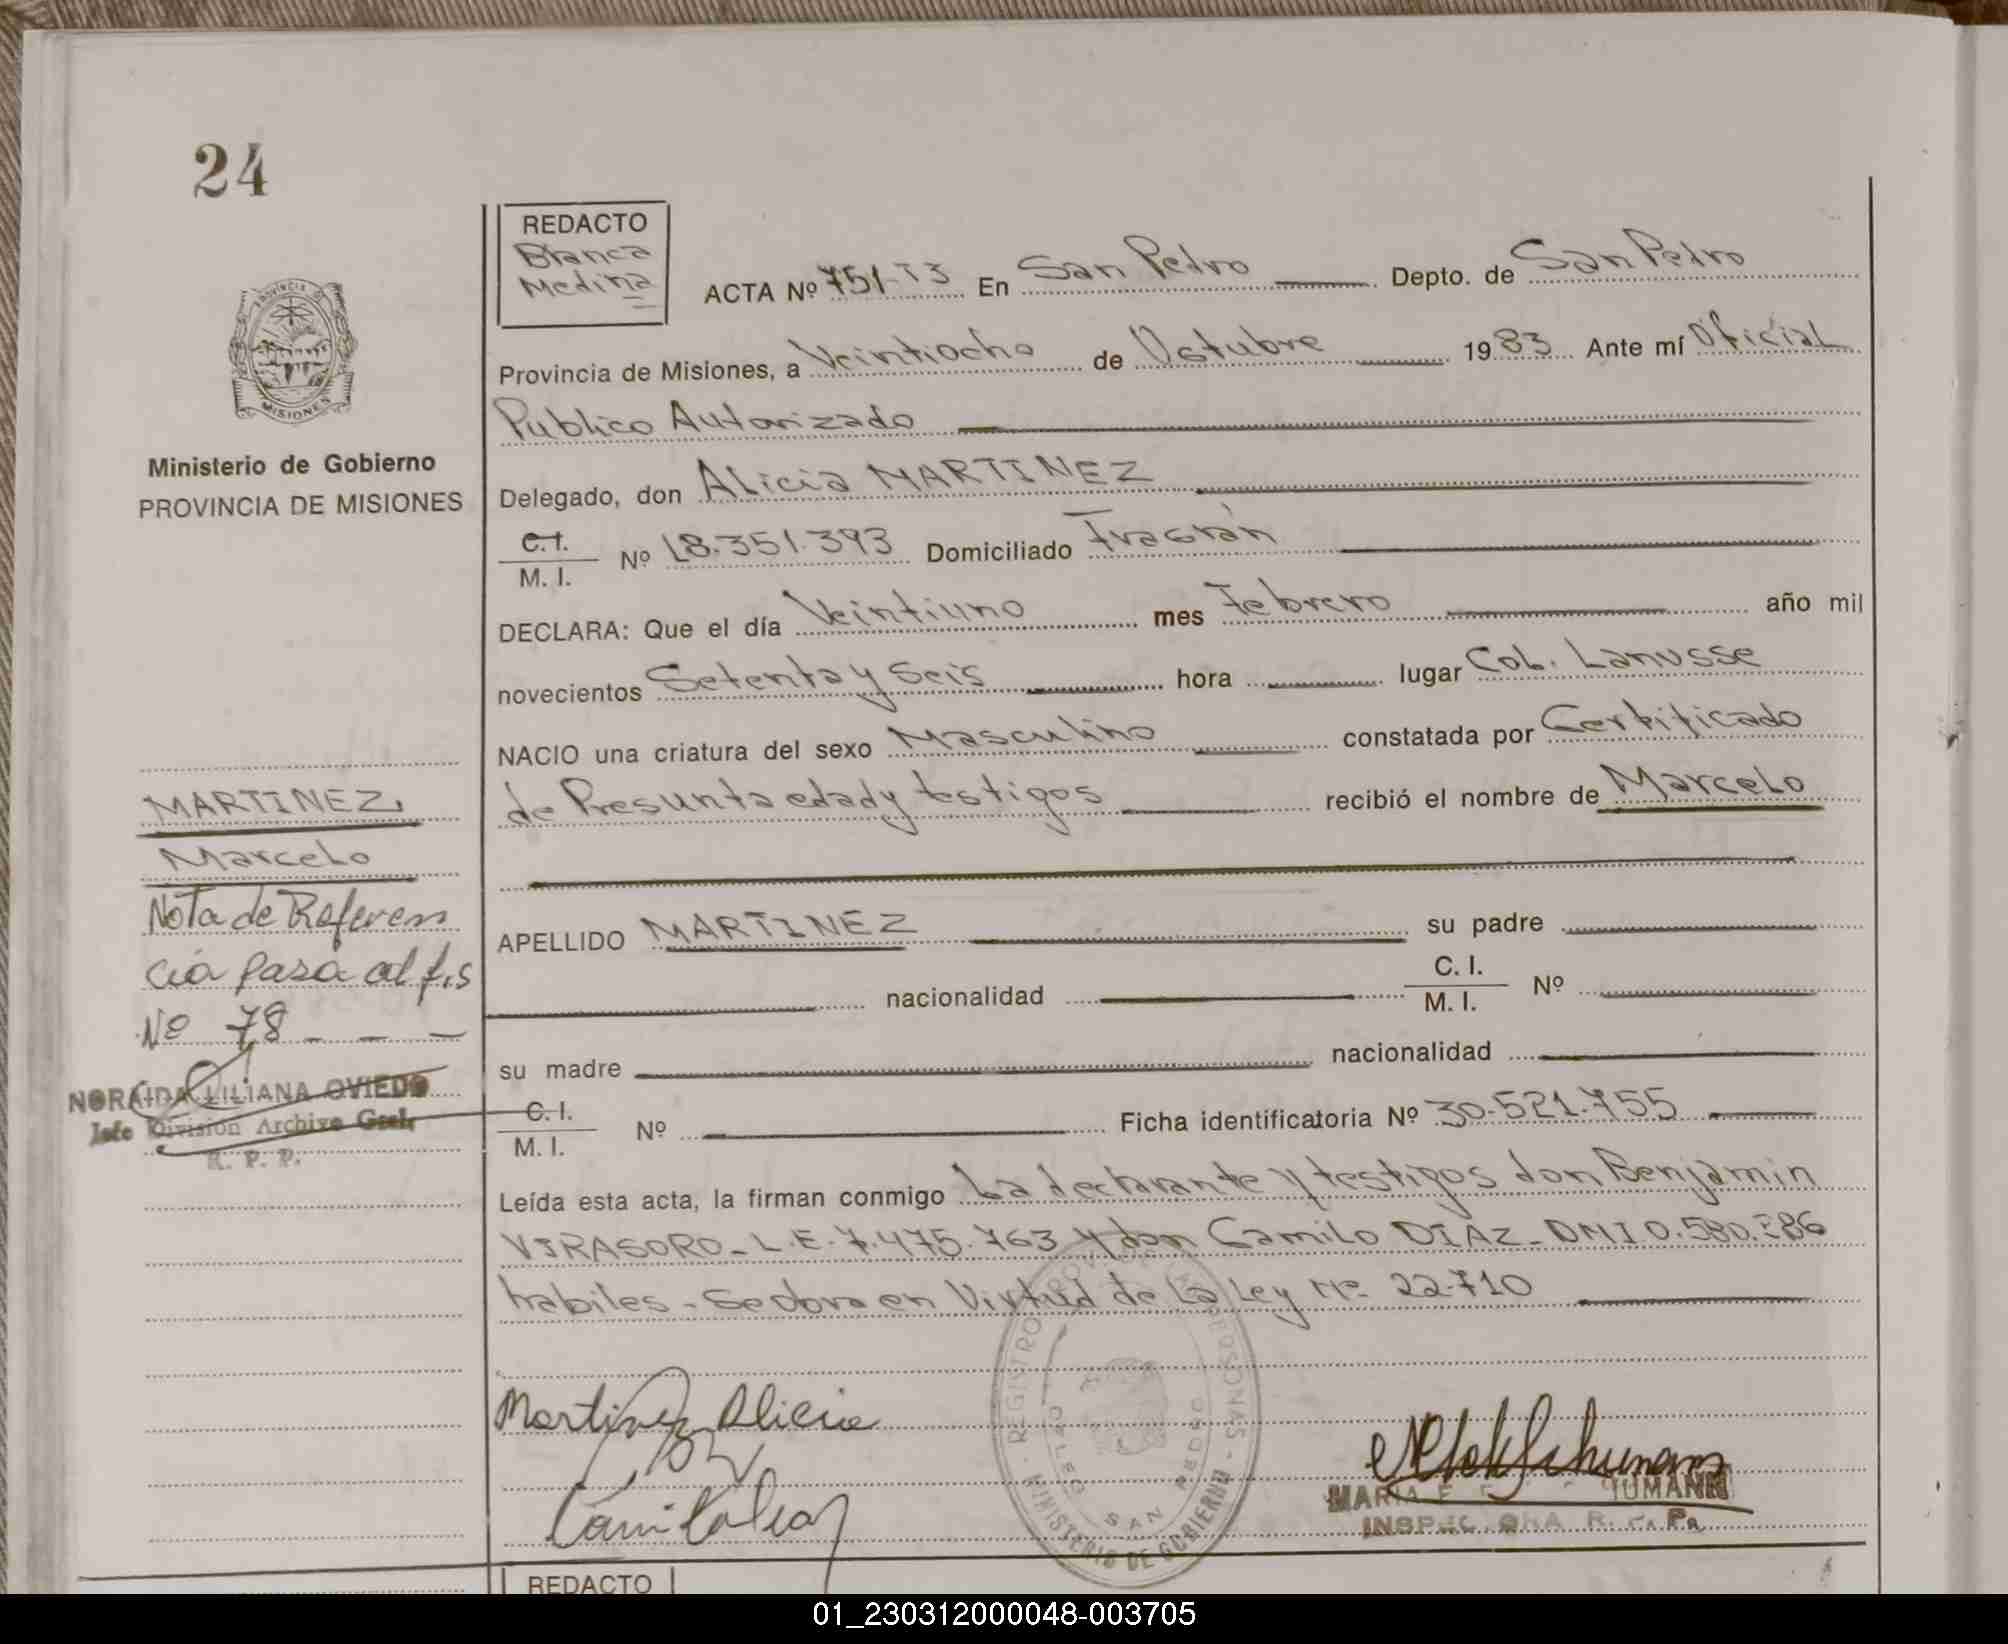 24
REDACTO
Blanca
Medina
ACTA Nº 751-T3 En San Pedro Depto. de San Pedro
Provincia de Misiones, a Veintiocho de Octubre 1983 Ante mí Oficial
Publico Autorizado
PROVINCIA DE
MISIONES
Ministerio de Gobierno
PROVINCIA DE MISIONES
Delegado, don Alicia MARTINEZ
C.I.
M. I. Nº 18.351.393 Domiciliado Fracrán
DECLARA: Que el día Veintiuno mes Febrero año mil
novecientos Setenta y Seis hora lugar Col. Lanusse
NACIO una criatura del sexo Masculino constatada por Certificado
de Presunta edad y testigos recibió el nombre de Marcelo
MARTINEZ,
Marcelo
Nota de Referen
cia pasa al fis
Nº 78 _ _ _
NORAIDA LILIANA OVIEDO
Jefe División Archivo Gral.
R. P. P.
APELLIDO MARTINEZ su padre
nacionalidad C. I.
M. I. Nº
su madre nacionalidad
C. I.
M. I. Nº Ficha identificatoria Nº 30.521.755
Leída esta acta, la firman conmigo La declarante y testigos don Benjamin
VIRASORO_ L.E. 7.475.763 y don Camilo DIAZ_ DNI 0.580.286
habiles - Se labra en Virtud de La Ley Nº 22.710
Martinez Alicia
Camilo Diaz
REGISTRO PROV. DE LAS PERSONAS - MINISTERIO DE GOBIERNO
SAN PEDRO
MARIA E. SCHUMANN
INSPECTORA R. P. P.
REDACTO
01_230312000048-003705